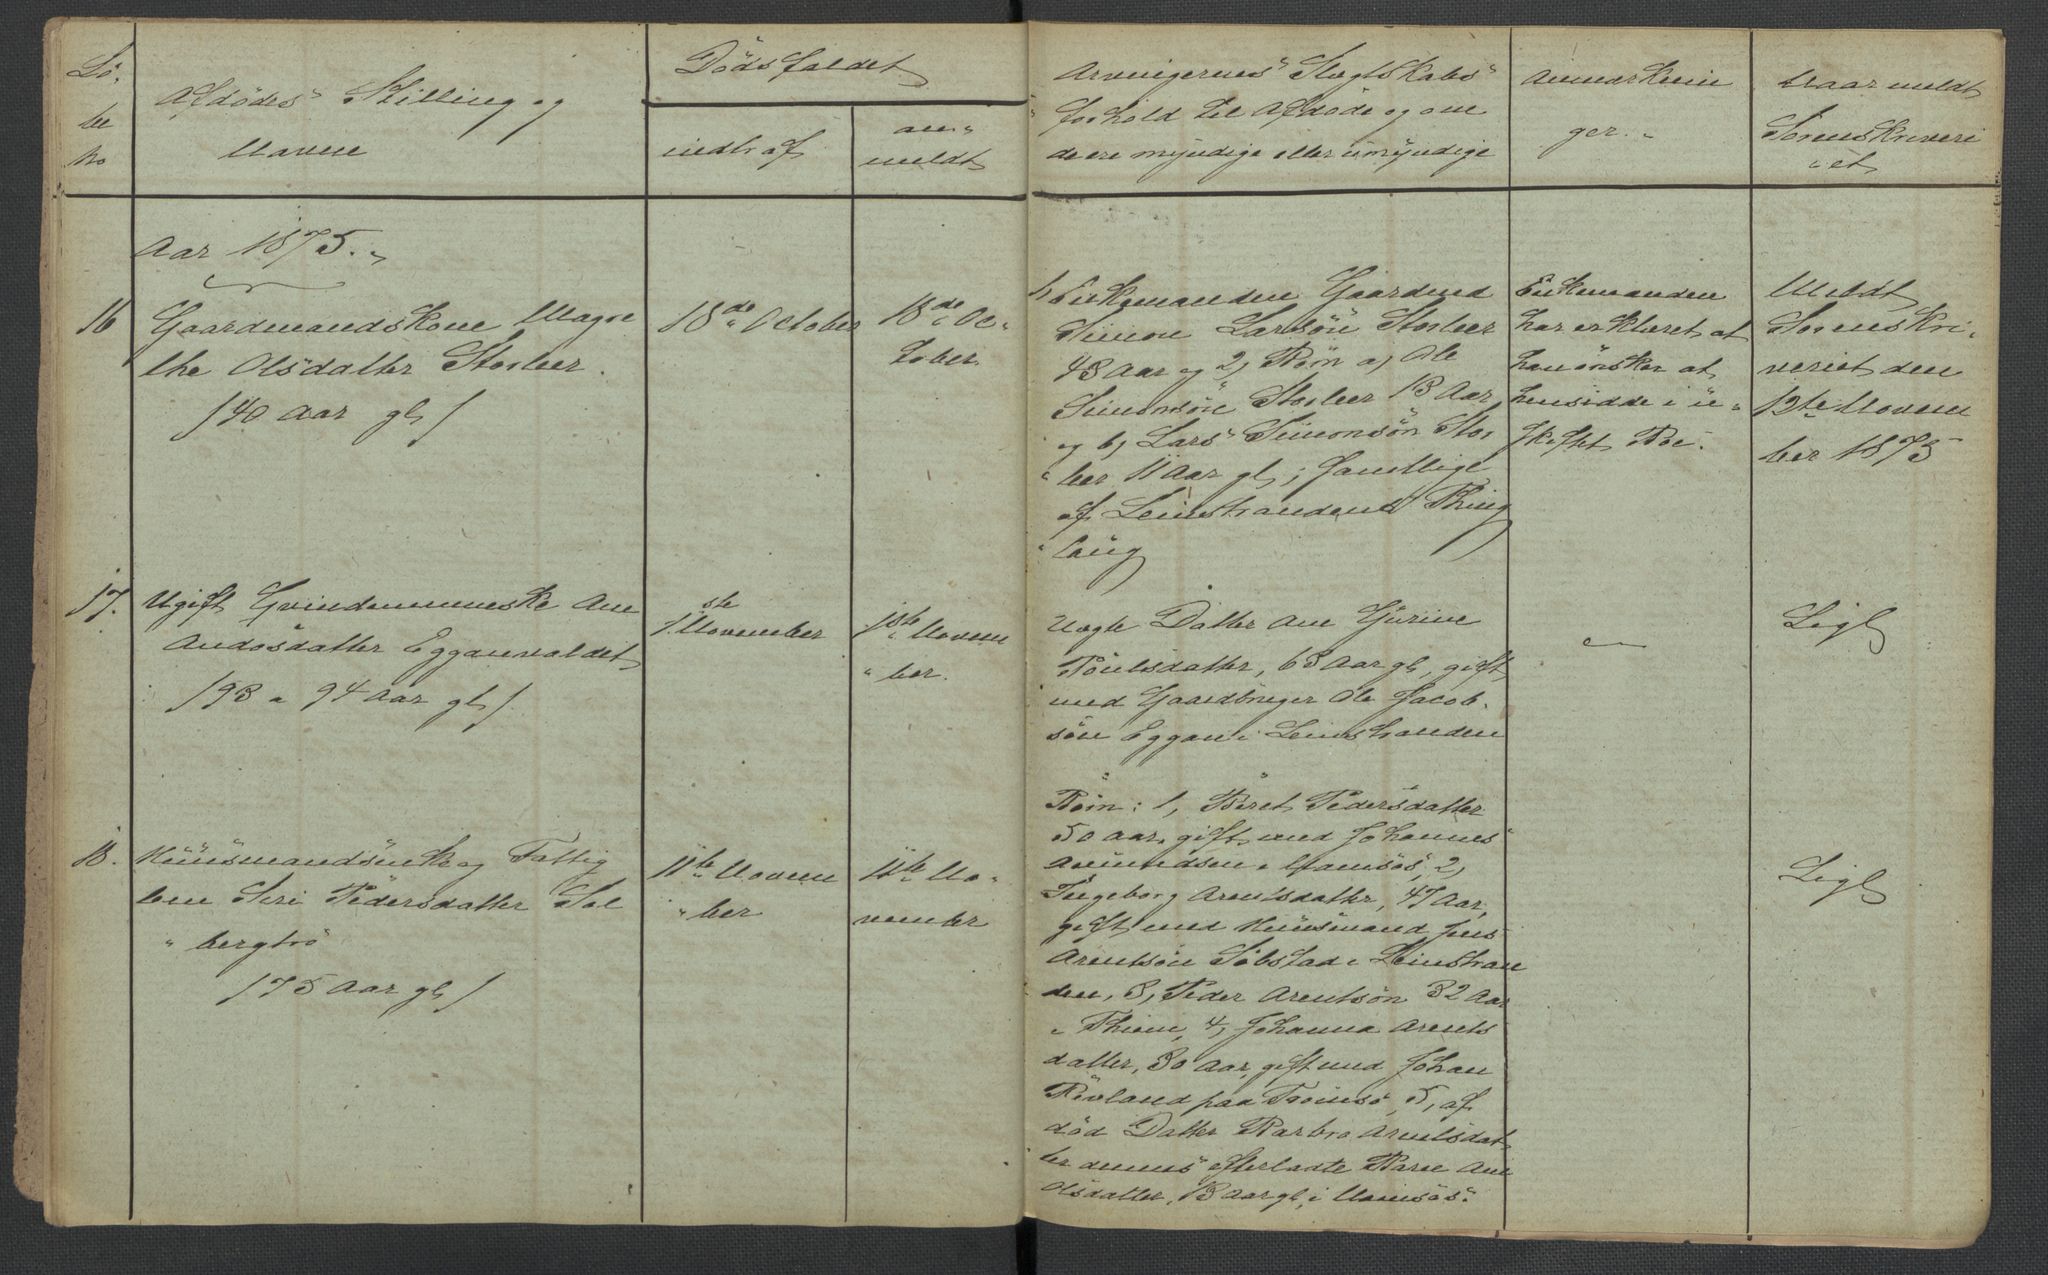 Lö-
be
no
Afdödes Stilling og
Navne
Dödsfaldet
indtraf
an-
meldt
Arvingernes Slægtskabs
forhold til Afdöde og om
de ere myndige eller umyndige
Anmærknin
ger.
Naar meldt
Sorenskriveri
et
Aar 1875.
16
Gaardmandskone Magre
the Olsdatter Storleer.
/40 Aar gl/
18de October
18de Oc-
tober
1, Enkemanden Gaardmd
Simon Larsön Storleer
43 Aar og 2, Börn a, Ole
Simonsön Storleer 13 Aar,
og b, Lars Simonsön Stor
leer 11 Aar gl; samtlige
af Leinstrandens Thing
laug
Enkemanden
har erklæret at
han önsker at
hensidde i u-
skiftet Boe.
Meldt
Sorenskri-
veriet den
12te Novem
ber 1875
17.
Ugift Qvindemenneske Ane
Andosdatter Egganvaldet
/93 a 94 Aar gl/
1ste November
1ste Novem
ber.
Uægte Datter Ane Gurine
Poulsdatter, 63 Aar gl, gift
med Gaardbruger Ole Jacob-
sön Eggan i Leinstranden
Ligl
18.
Huusmandsenke og Fattig
lem Siri Pedersdatter Sol
bergtrö
/75 Aar gl/
11te Novem
ber
11te No-
vember
Börn: 1, Beret Pedersdatter
50 Aar, gift med Johannes
Amundsen i Namsös, 2,
Ingeborg Arentsdatter, 47 Aar,
gift med Huusmand Jens
Arentsön Söbstad i Leinstran
den, 3, Peder Arentsön 32 Aar
i Thiem, 4, Johanna Arents
datter, 30 Aar, gift med Johan
Rövland paa Tromsö, 5, af
död Datter Barbro Arentsdat
ter dennes efterladte Barn Ane
Olsdatter, 13 Aar gl, i Namsös.
Ligl